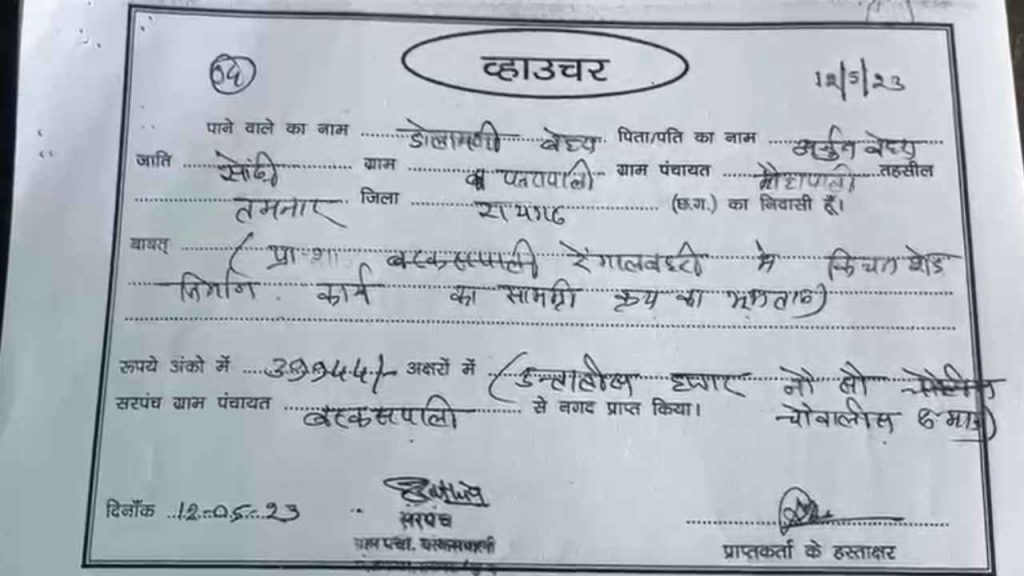 व्हाउचर
12/5/23
पाने वाले का नाम डोलामणी वेद्य पिता/पति का नाम अर्जुन वेद्य
जाति ग्राम पतरापाली ग्राम पंचायत तहसील
तमनार जिला रायगढ (छ.ग.) का निवासी हूँ।
बाबत् (प्रा.शा. बरकसपाली रेंगालबहरी मे किचन शेड
निर्माण कार्य का सामग्री क्रय का भुगतान)
रूपये अंको में 39944/- अक्षरों में (उन्तालीस हजार नौ सौ
सरपंच ग्राम पंचायत बरकसपाली से नगद प्राप्त किया। चौवालीस रु मात्र)
दिनाँक 12-05-23
सरपंच
प्राप्तकर्ता के हस्ताक्षर